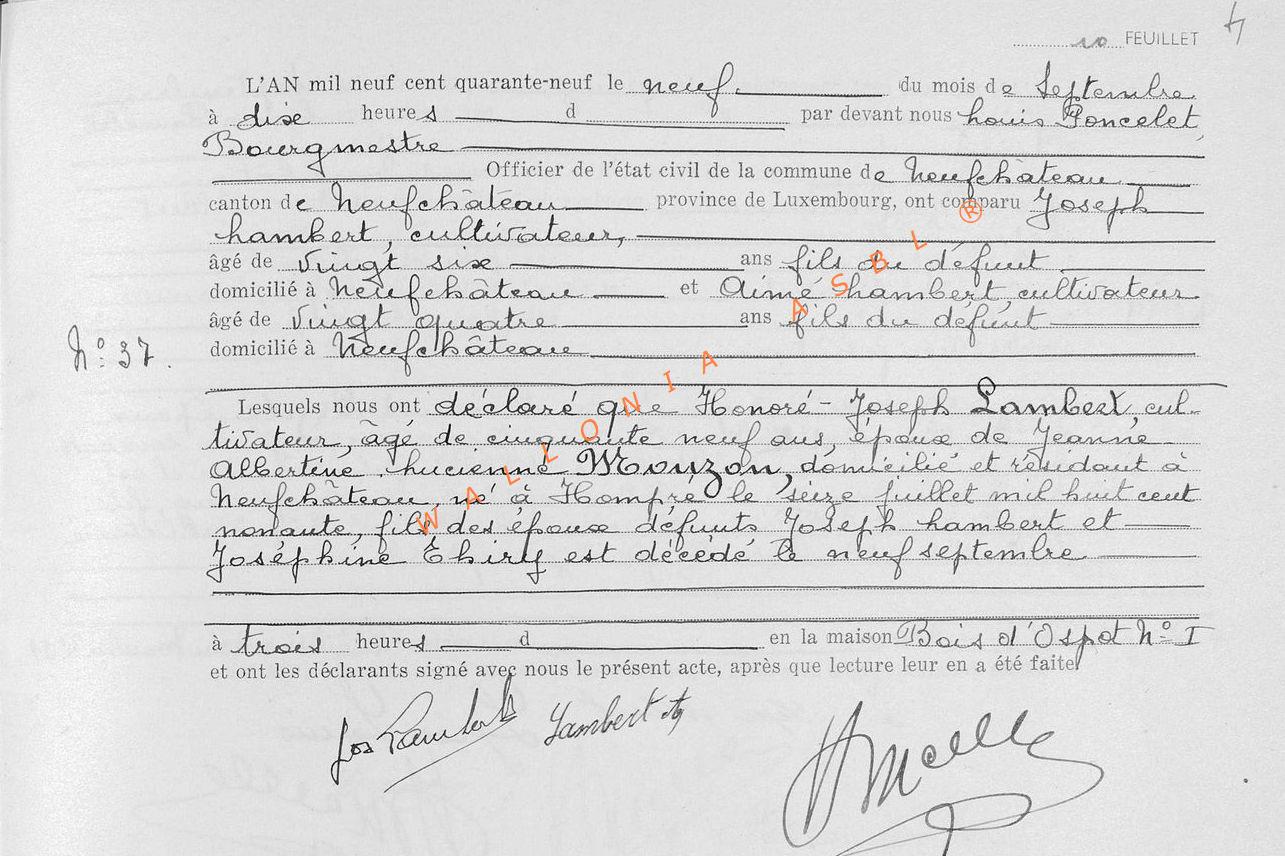 10 FEUILLET
4
L'AN mil neuf cent quarante-neuf le neuf. du mois de Septembre
à dix heures d par devant nous Louis Poncelet,
Bourgmestre
Officier de l'état civil de la commune de Neufchâteau
canton de Neufchâteau province de Luxembourg, ont comparu Joseph
Lambert, cultivateur,
âgé de vingt six ans fils du défunt
domicilié à Neufchâteau et Aimé Lambert, cultivateur
âgé de vingt quatre ans fils du défunt
domicilié à Neufchâteau
N° 37.
Lesquels nous ont déclaré que Honoré-Joseph Lambert, cul-
tivateur, âgé de cinquante neuf ans, époux de Jeanne
Albertine Lucienne Mouzon, domicilié et résidant à
Neufchâteau, né à Hompré le seize juillet mil huit cent
nonante, fils des époux défunts Joseph Lambert et
Joséphine Thiry est décédé le neuf septembre
à trois heures d en la maison Bois d'Ospot N° I
et ont les déclarants signé avec nous le présent acte, après que lecture leur en a été faite
Jos Lambert Lambert
WALLONIA ASBL ®